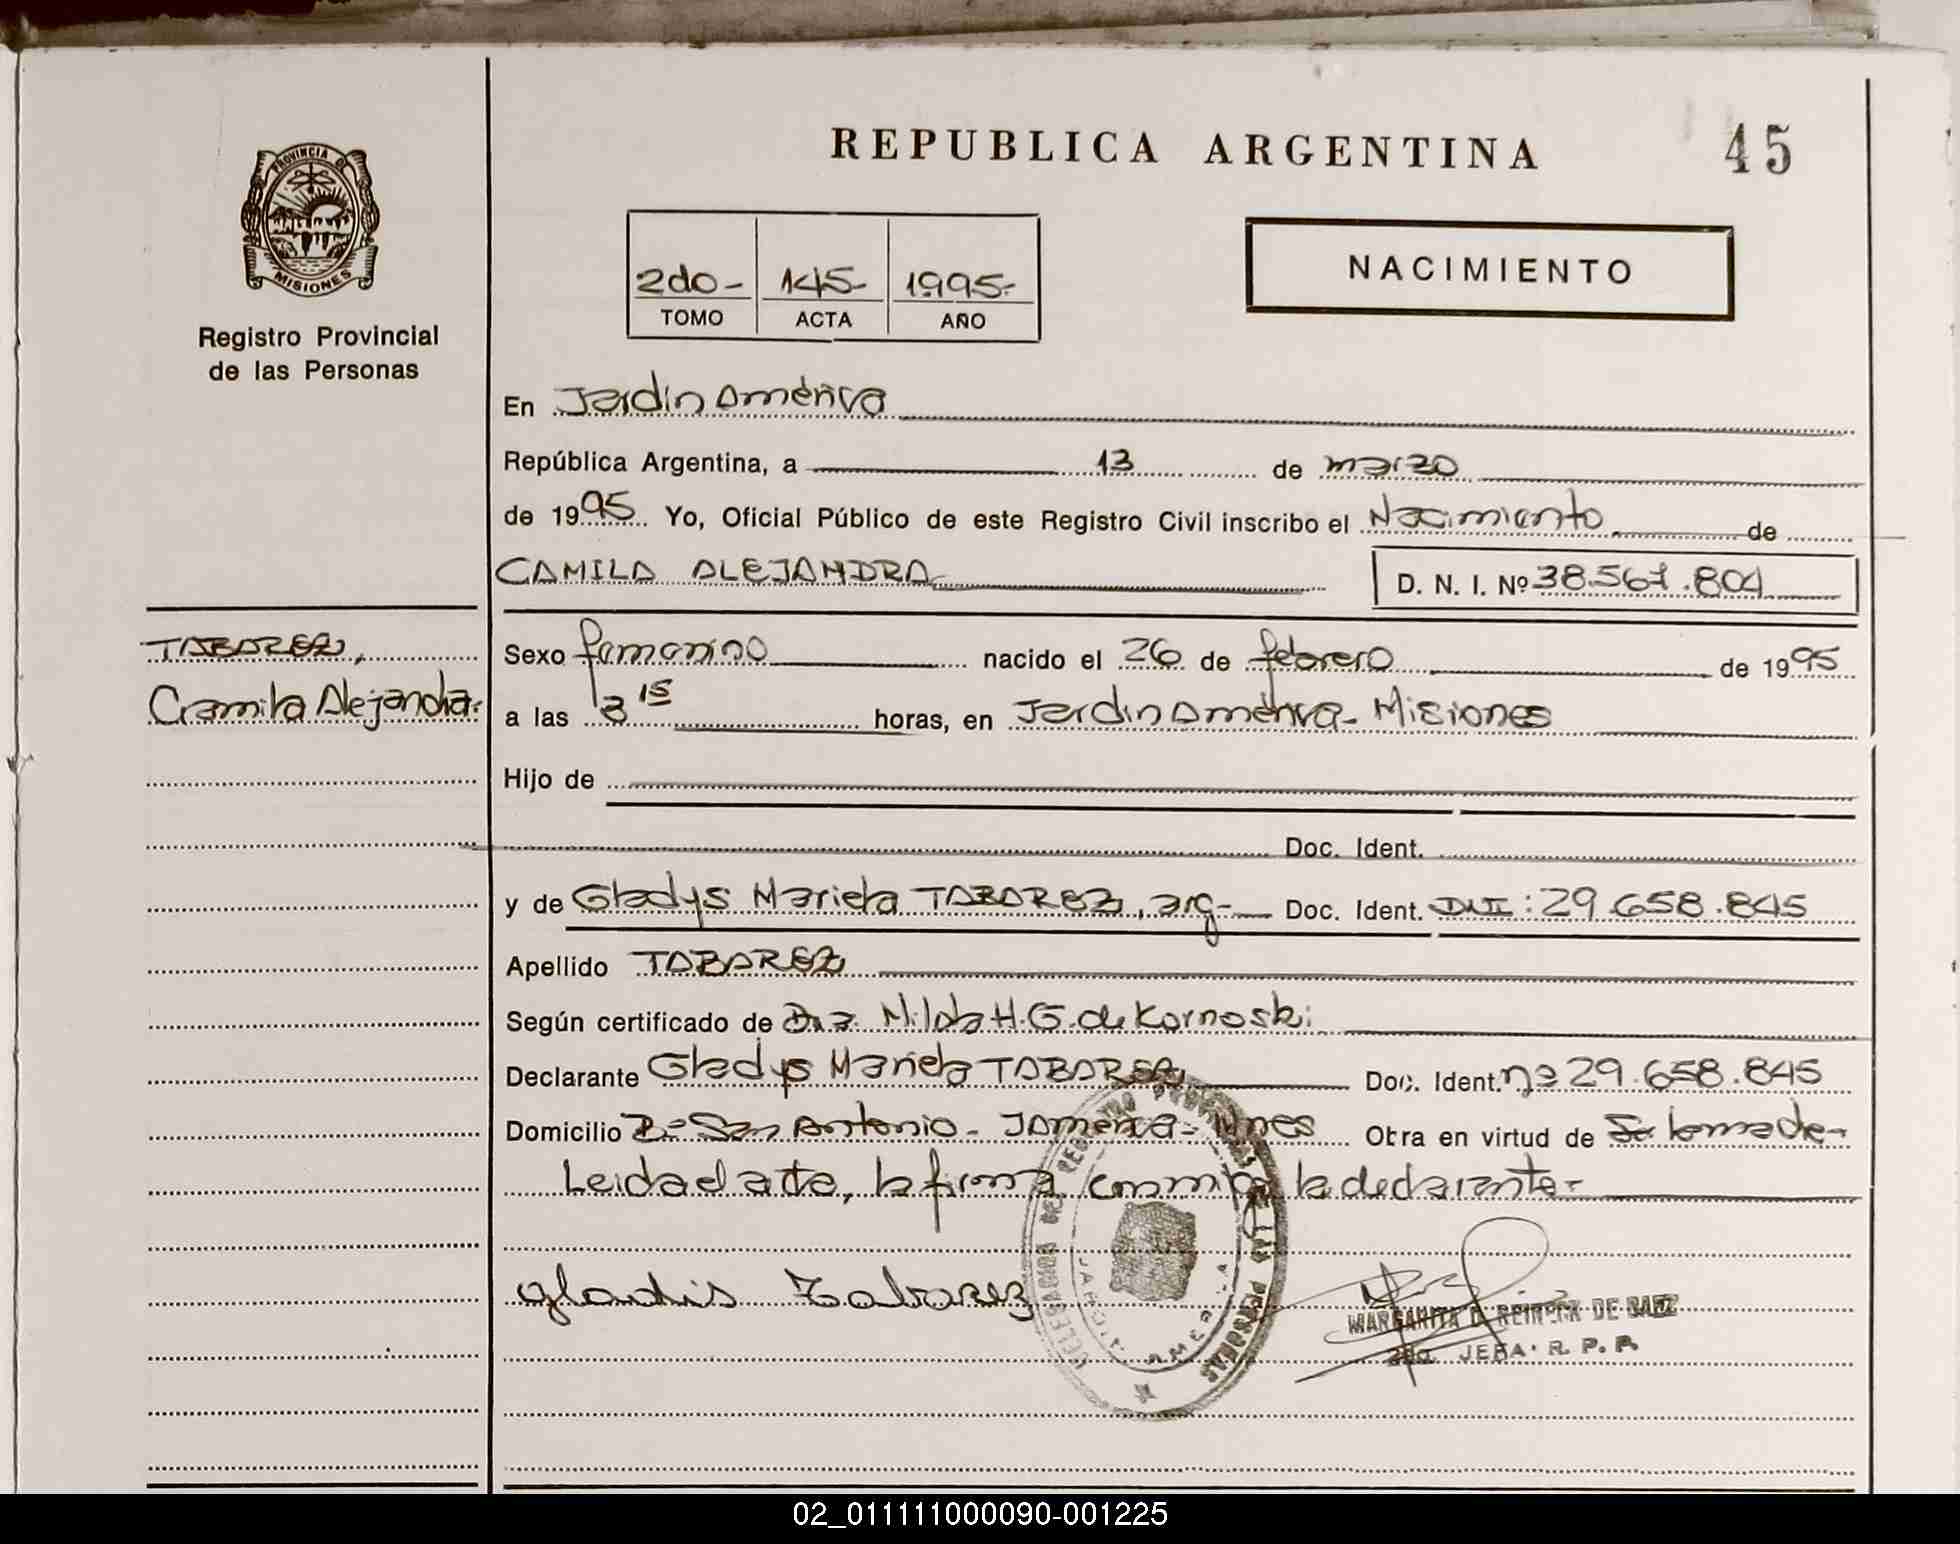 REPUBLICA ARGENTINA
45
PROVINCIA DE
MISIONES
Registro Provincial
de las Personas
2do- 145- 1995-
TOMO ACTA AÑO
NACIMIENTO
En Jardín América
República Argentina, a 13 de marzo
de 1995 Yo, Oficial Público de este Registro Civil inscribo el Nacimiento de
CAMILA ALEJANDRA D. N. I. Nº 38.561.804
TABAREZ,
Camila Alejandra.
Sexo femenino nacido el 26 de febrero de 1995
a las 3 15 horas, en Jardín América - Misiones
Hijo de
Doc. Ident.
y de Gladys Mariela TABAREZ, arg- Doc. Ident. DNI: 29.658.845
Apellido TABAREZ
Según certificado de Dra. Nilda H. G. de Kornoski
Declarante Gladys Mariela TABAREZ Doc. Ident. nº 29.658.845
Domicilio Bº San Antonio - J América - Mnes Obra en virtud de
Leida el acta, la firma conmigo la declarante-
gladis Tabarez
DELEGACION DEL REGISTRO PROVINCIAL DE LAS PERSONAS
JARDIN AMERICA
MARGARITA DE BAEZ
JEFA R. P. P.
02_011111000090-001225